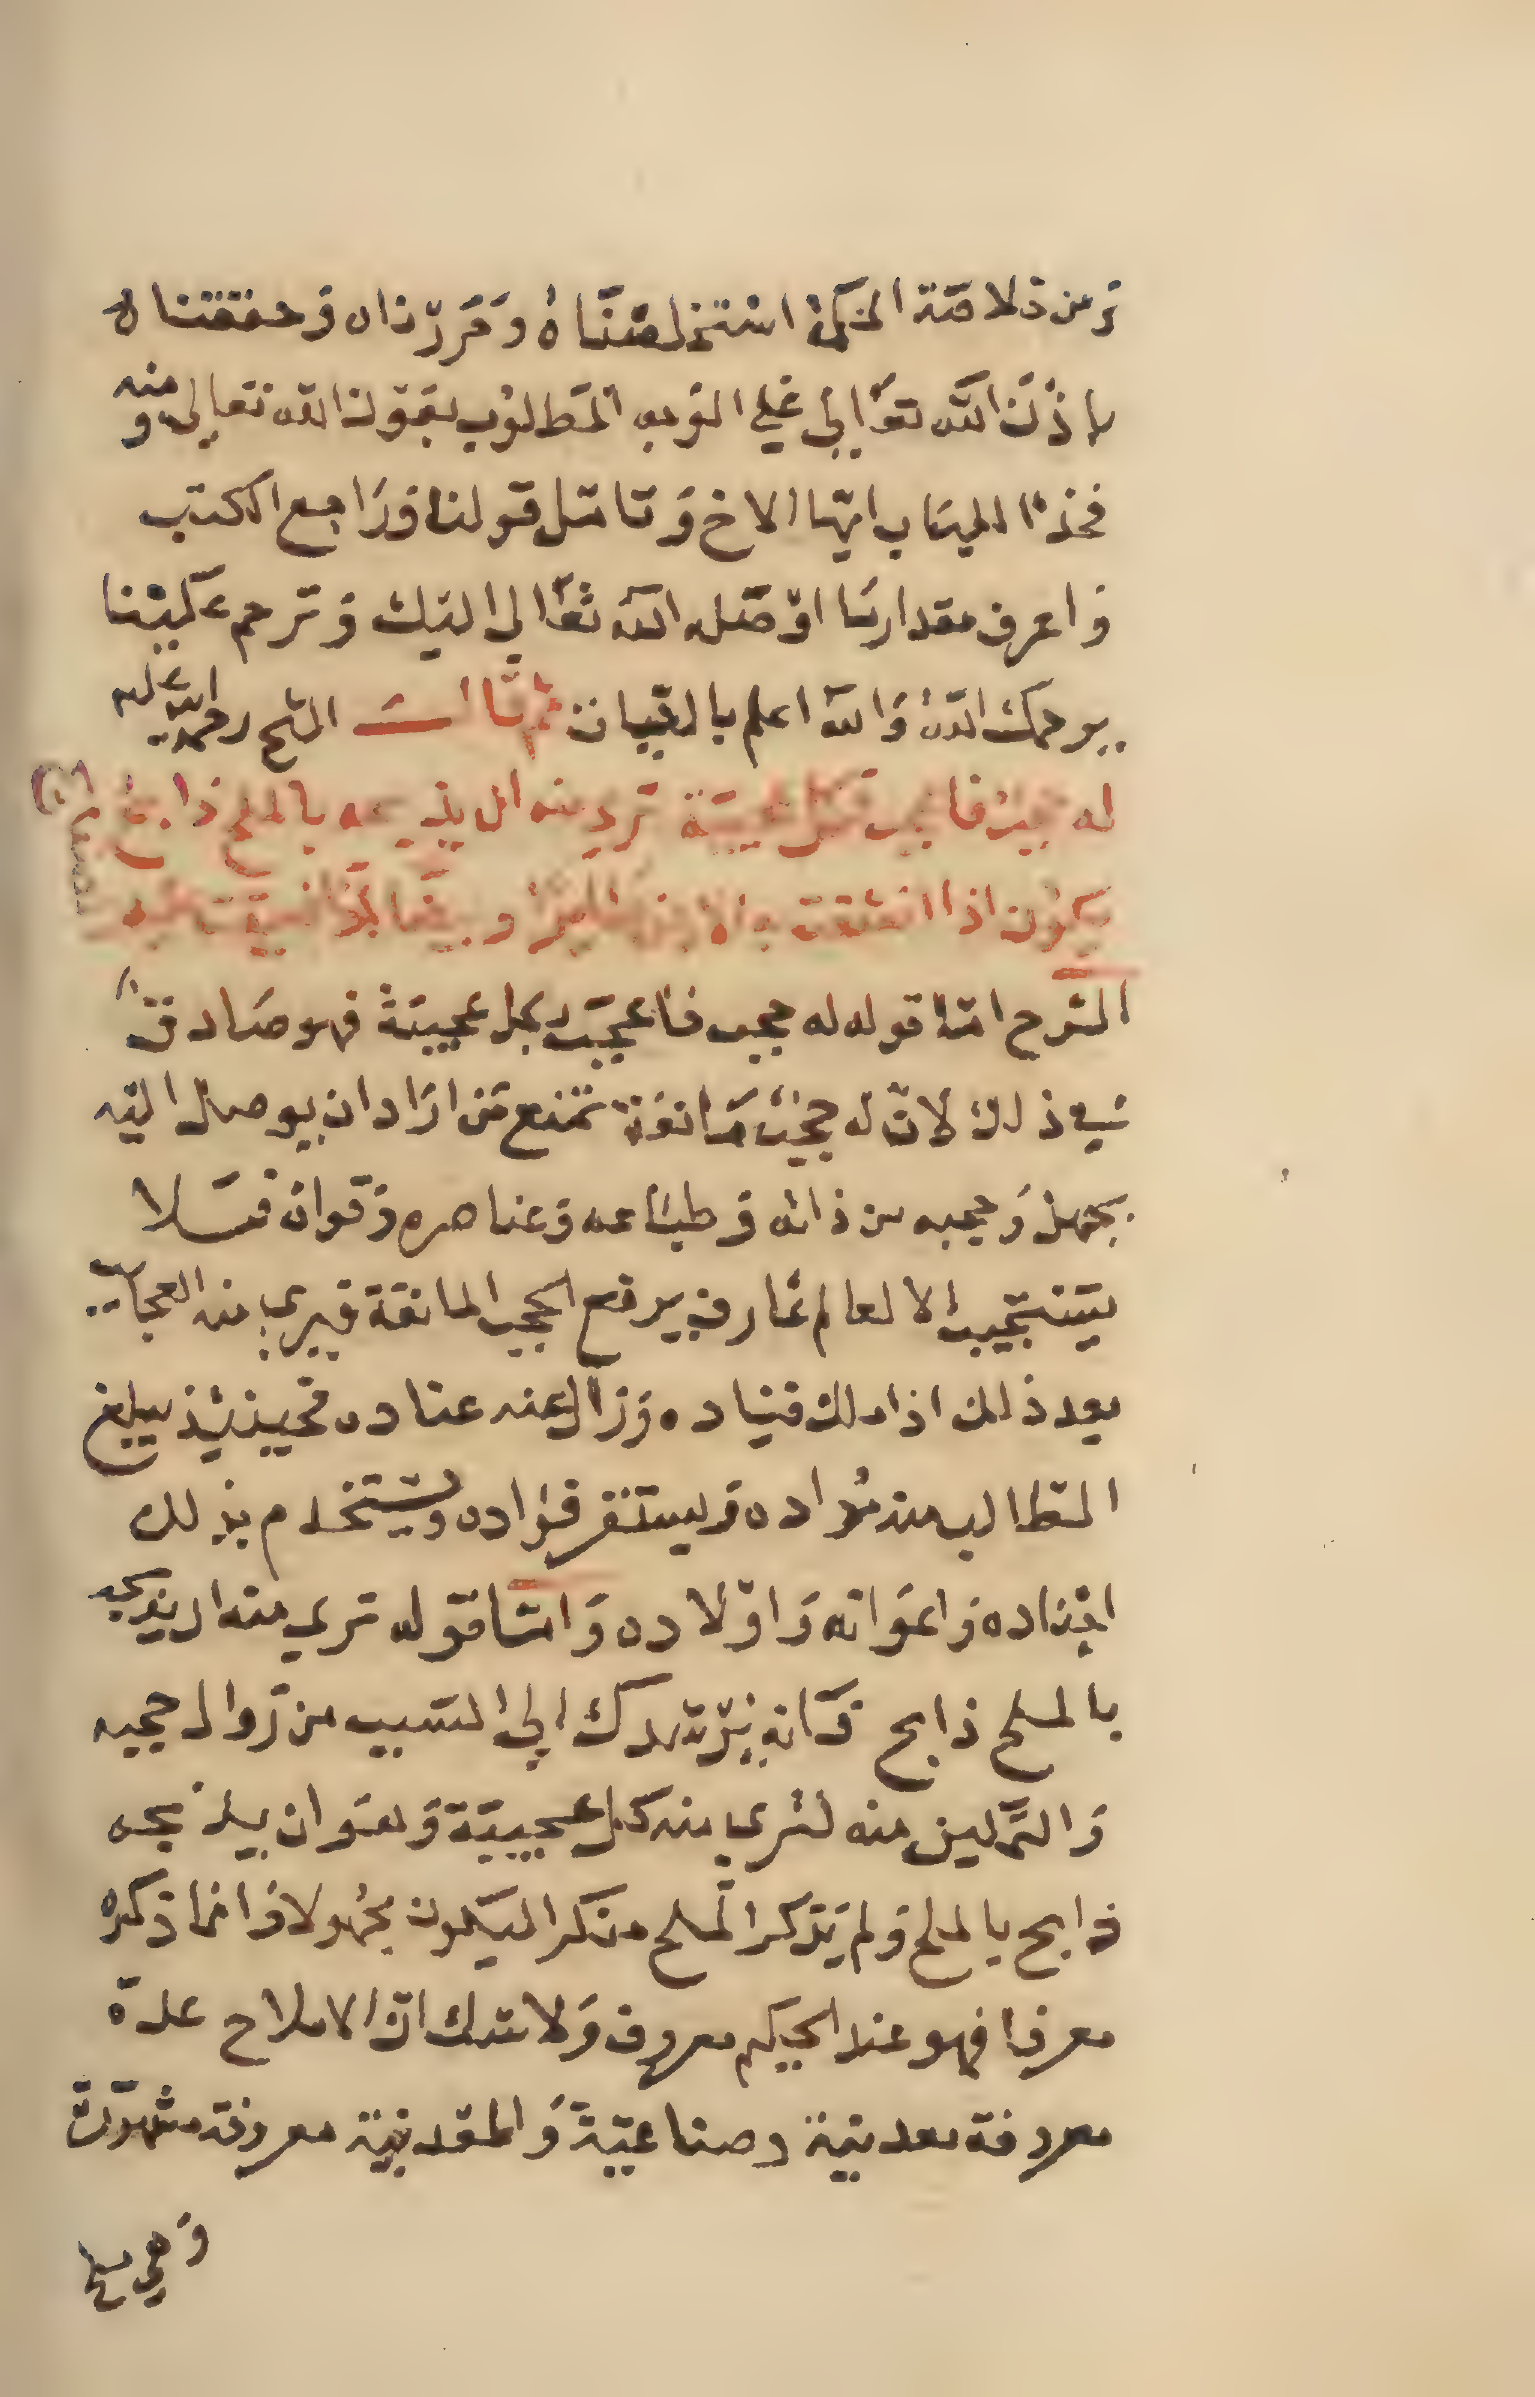 ومن خلاصة الحكمة استخلصناه وقررناه وحققناه
باذن الله تعالى على الوجه المطلوب بقوة الله تعالى ومنه
فخذ اللباب ايها الاخ وتامل قولنا وراجع الكتب
واعرف مقدار ما اوصله الله تعالى اليك وترحم علينا
يرحمك الله والله اعلم بالتبيان ثم قال الشيخ رحمة الله عليه
له حجب فاعجب بكل عجيبة ترى منه ان يذبحه بالملح ذابح
يكون اذا
الشرح اما قوله له حجب فاعجب بكل عجيبة فهو صادق
في ذلك لان له حجب مانعة تمنع من اراد ان يوصل اليه
بجهل وحجبه من ذاته وطبائعه وعناصره وقواه فلا
يستجيب الا لعالم عارف يرفع الحجب المانعة فيرى منه العجايب
بعد ذلك اذا ملك قياده وزال عنه عناده فحينئذ يبلغ
الطالب منه مراده ويستقر فؤاده ويستخدم بذلك
اجناده واعوانه واولاده واما قوله ترى منه ان يذبحه
بالملح ذابح فكانه يرشدك الى السبب من زوال حجبه
والتمكين منه لترى منه كل عجيبة وهو ان يذبحه
ذابح بالملح ولم يذكر الملح منكرا ليكون مجهولا وانما ذكره
معرفا فهو عند الحكيم معروف ولا شك ان الاملاح عدة
معروفة معدنية وصناعية والمعدنية معروفة مشهورة
وهي ملح